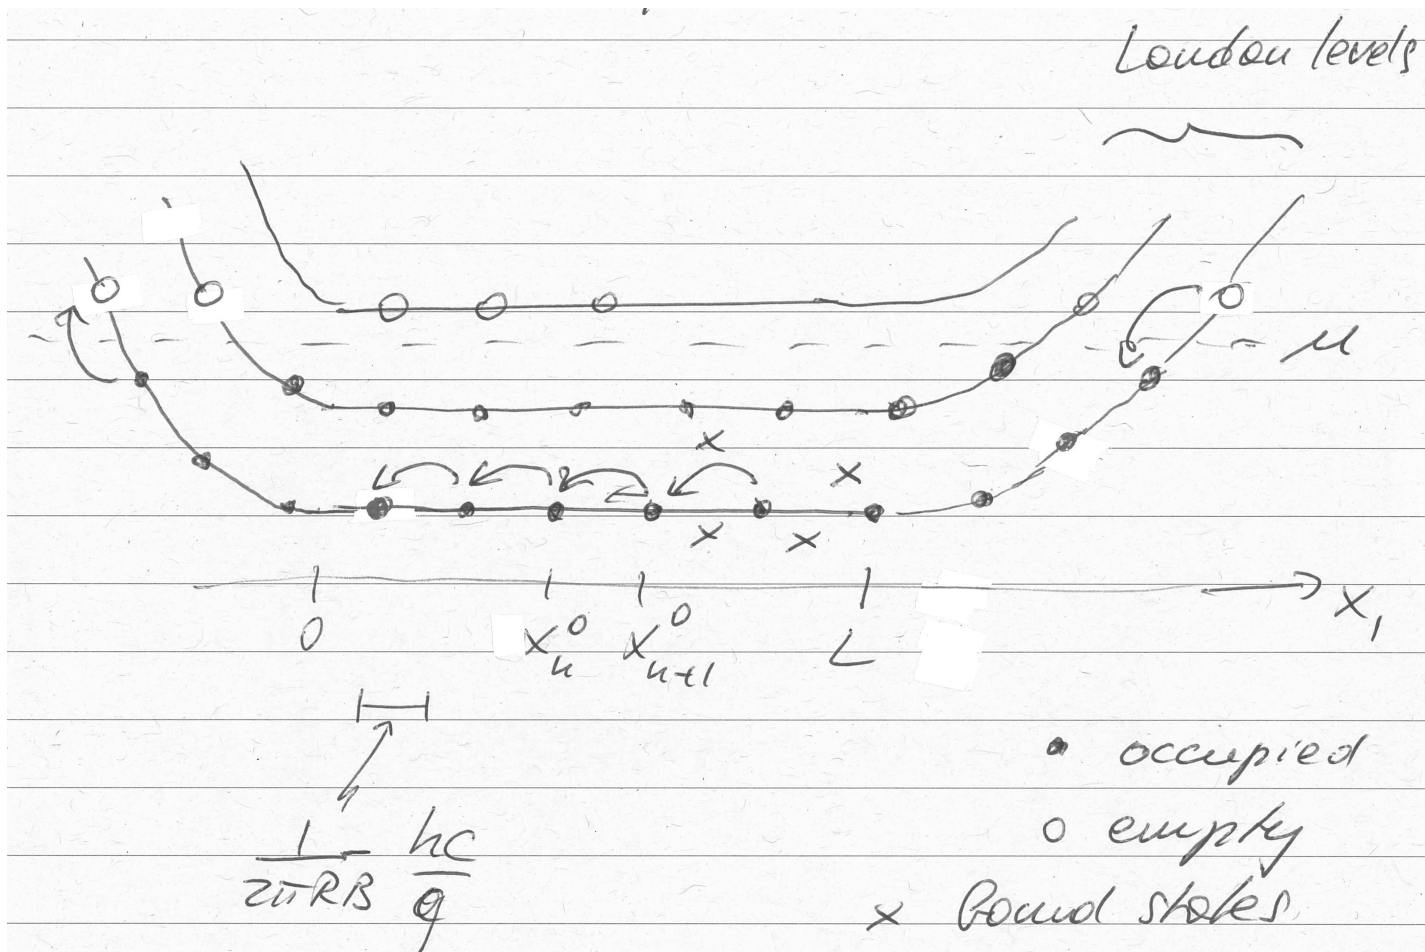 London levels
μ
x₁
0
xₙ⁰
xₙ₊₁⁰
L
1/2πRB hc/q
• occupied
○ empty
× bound states